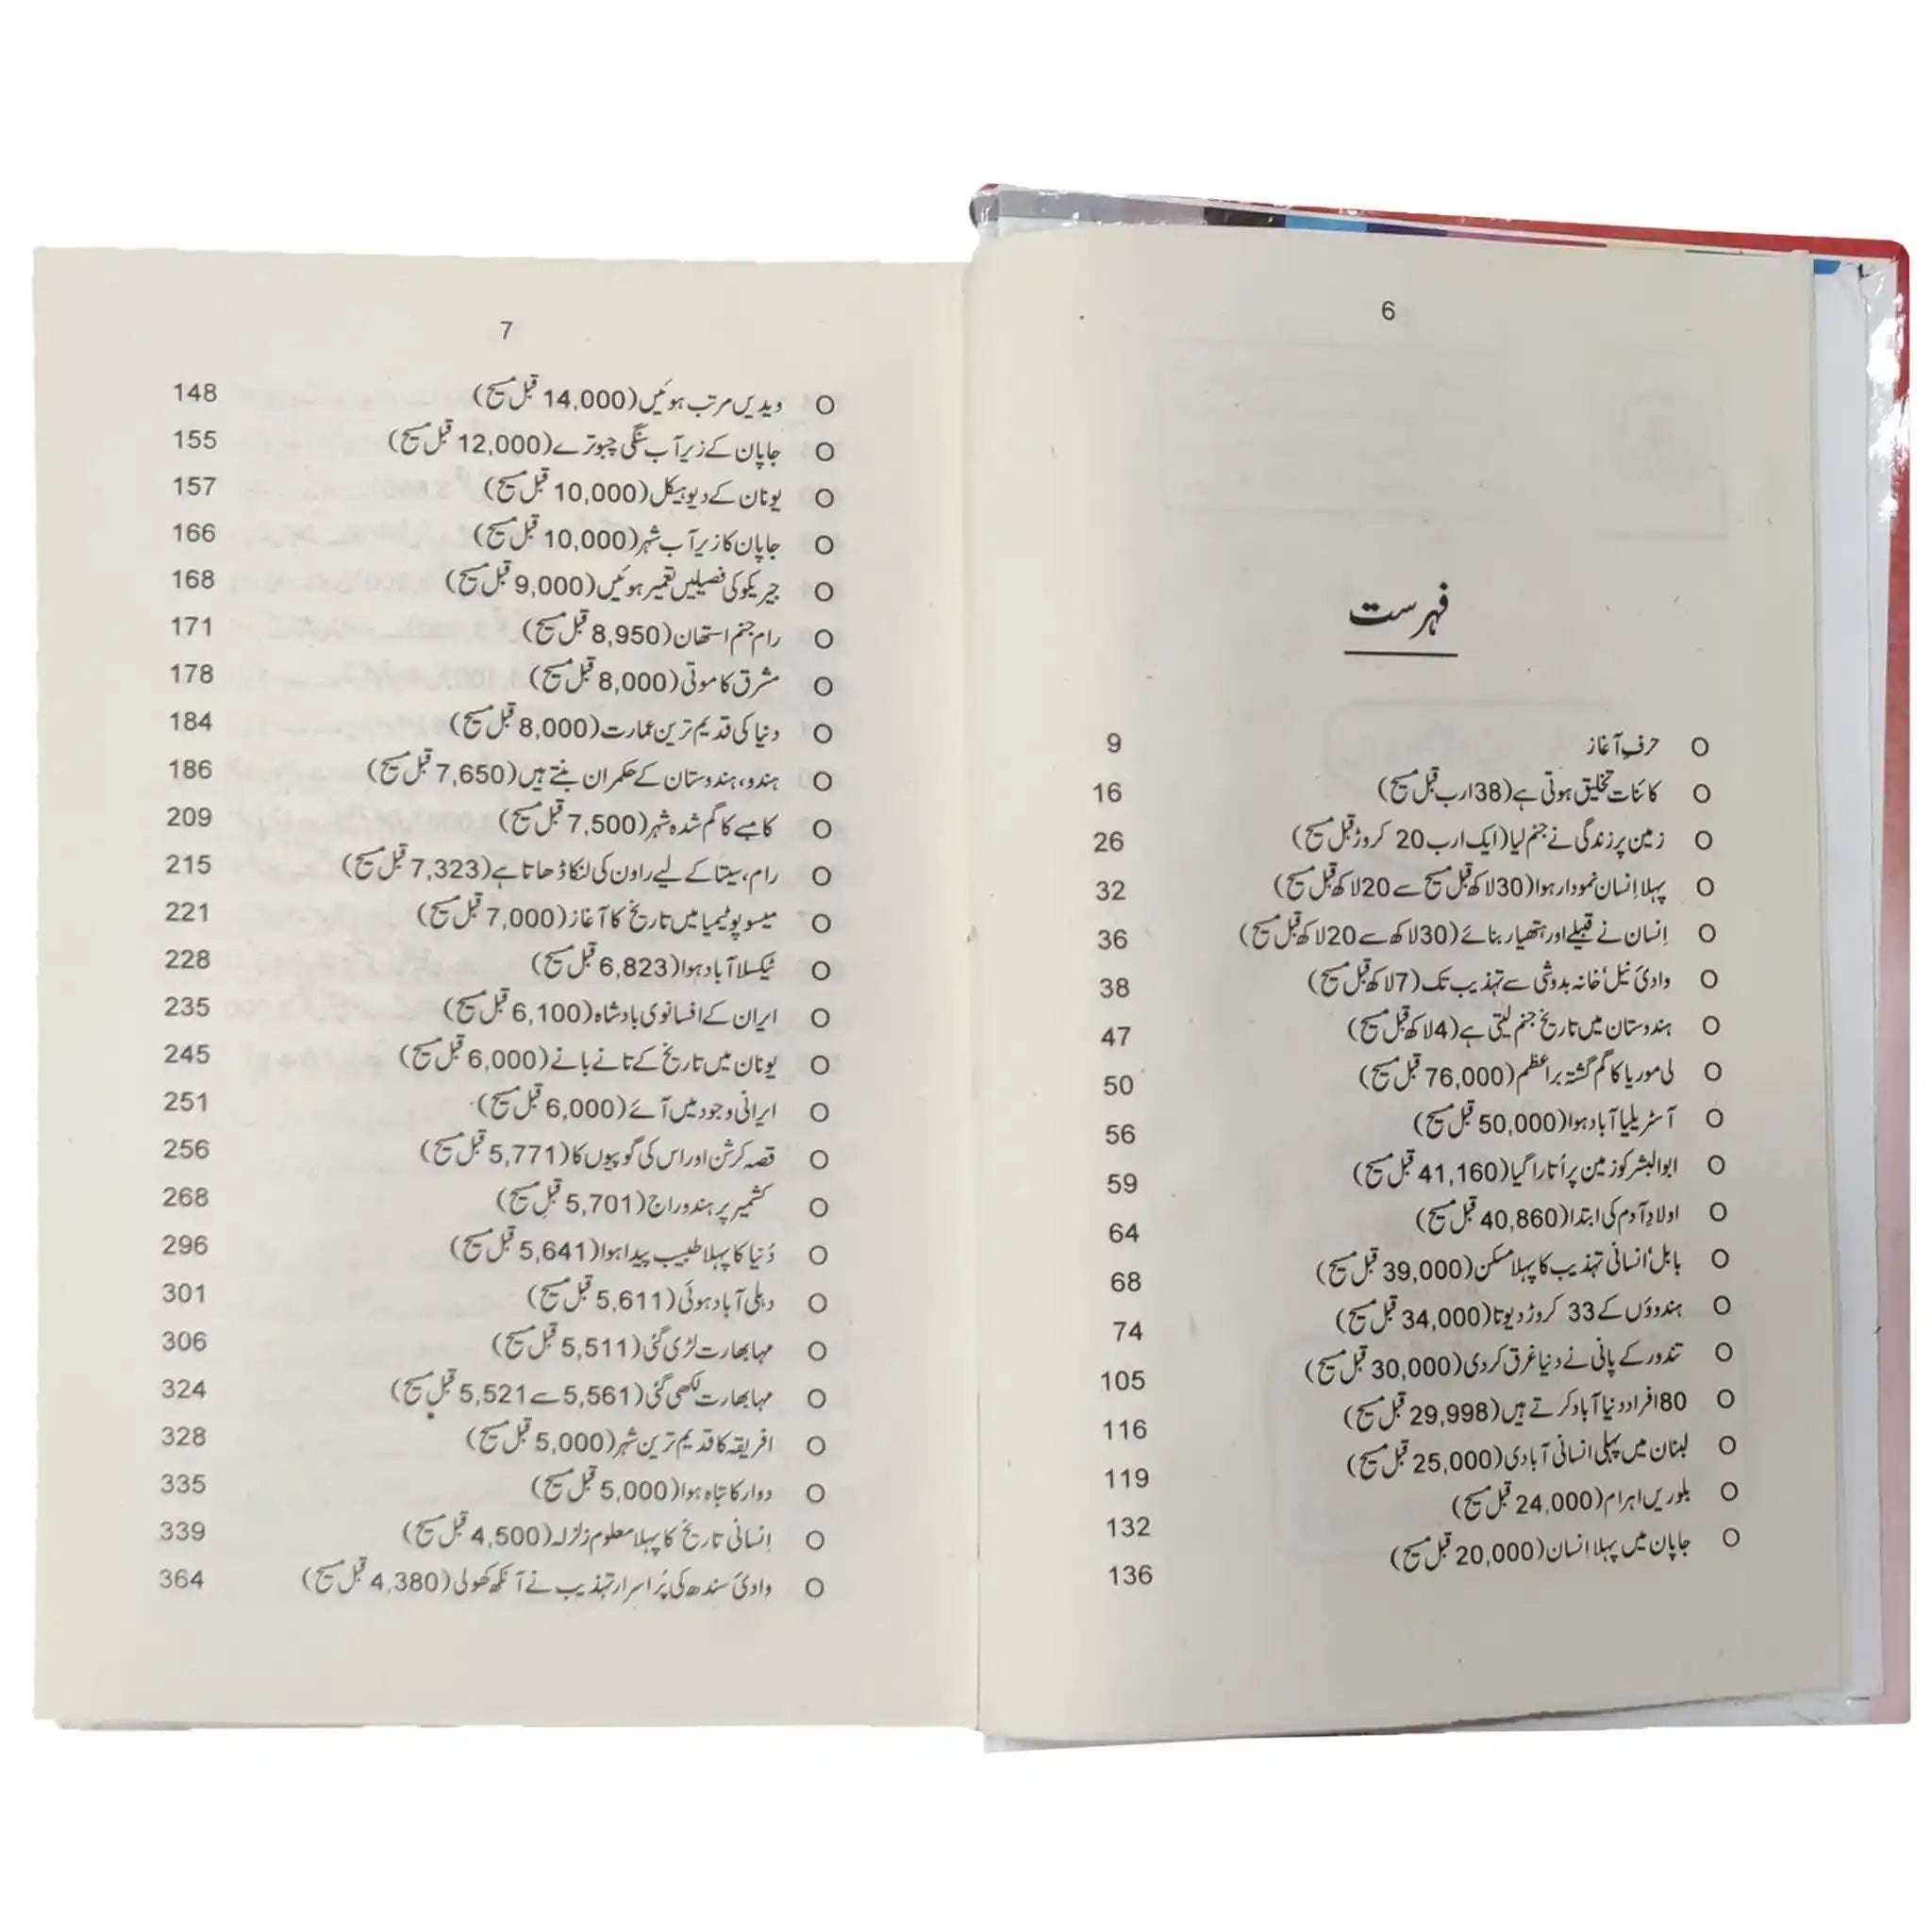 6
فہرست
حرفِ آغاز 9
کائنات تخلیق ہوتی ہے (38 ارب قبل مسیح) 16
زمین پر زندگی نے جنم لیا (ایک ارب 20 کروڑ قبل مسیح) 26
پہلا اِنسان نمودار ہوا (30 لاکھ قبل مسیح سے 20 لاکھ قبل مسیح) 32
اِنسان نے قبیلے اور ہتھیار بنائے (30 لاکھ سے 20 لاکھ قبل مسیح) 36
وادیٔ نیل' خانہ بدوشی سے تہذیب تک (7 لاکھ قبل مسیح) 38
ہندوستان میں تاریخ جنم لیتی ہے (4 لاکھ قبل مسیح) 47
لی موریا کا گم گشتہ براعظم (76,000 قبل مسیح) 50
آسٹریلیا آباد ہوا (50,000 قبل مسیح) 56
ابوالبشر کو زمین پر اُتارا گیا (41,160 قبل مسیح) 59
اولادِ آدم کی ابتدا (40,860 قبل مسیح) 64
بابل' انسانی تہذیب کا پہلا مسکن (39,000 قبل مسیح) 68
ہندوؤں کے 33 کروڑ دیوتا (34,000 قبل مسیح) 74
تندور کے پانی نے دنیا غرق کر دی (30,000 قبل مسیح) 105
80 افراد دنیا آباد کرتے ہیں (29,998 قبل مسیح) 116
لبنان میں پہلی انسانی آبادی (25,000 قبل مسیح) 119
بلوریں اہرام (24,000 قبل مسیح) 132
جاپان میں پہلا اِنسان (20,000 قبل مسیح) 136
7
ویدیں مرتب ہوئیں (14,000 قبل مسیح) 148
جاپان کے زیرآب سنگی چبوترے (12,000 قبل مسیح) 155
یونان کے دیوہیکل (10,000 قبل مسیح) 157
جاپان کا زیرآب شہر (10,000 قبل مسیح) 166
جیریکو کی فصیلیں تعمیر ہوئیں (9,000 قبل مسیح) 168
رام جنم استھان (8,950 قبل مسیح) 171
مشرق کا موتی (8,000 قبل مسیح) 178
دنیا کی قدیم ترین عمارت (8,000 قبل مسیح) 184
ہندو، ہندوستان کے حکمران بنتے ہیں (7,650 قبل مسیح) 186
کامبے کا گم شدہ شہر (7,500 قبل مسیح) 209
رام، سیتا کے لیے راون کی لنکا ڈھاتا ہے (7,323 قبل مسیح) 215
میسوپوٹیمیا میں تاریخ کا آغاز (7,000 قبل مسیح) 221
ٹیکسلا آباد ہوا (6,823 قبل مسیح) 228
ایران کے افسانوی بادشاہ (6,100 قبل مسیح) 235
یونان میں تاریخ کے تانے بانے (6,000 قبل مسیح) 245
ایرانی وجود میں آئے (6,000 قبل مسیح) 251
قصہ کرشن اور اس کی گوپیوں کا (5,771 قبل مسیح) 256
کشمیر پر ہندو راج (5,701 قبل مسیح) 268
دُنیا کا پہلا طبیب پیدا ہوا (5,641 قبل مسیح) 296
دہلی آباد ہوئی (5,611 قبل مسیح) 301
مہابھارت لڑی گئی (5,511 قبل مسیح) 306
مہابھارت لکھی گئی (5,561 سے 5,521 قبل مسیح) 324
افریقہ کا قدیم ترین شہر (5,000 قبل مسیح) 328
دوارکا تباہ ہوا (5,000 قبل مسیح) 335
اِنسانی تاریخ کا پہلا معلوم زلزلہ (4,500 قبل مسیح) 339
وادیٔ سندھ کی پُراسرار تہذیب نے آنکھ کھولی (4,380 قبل مسیح) 364